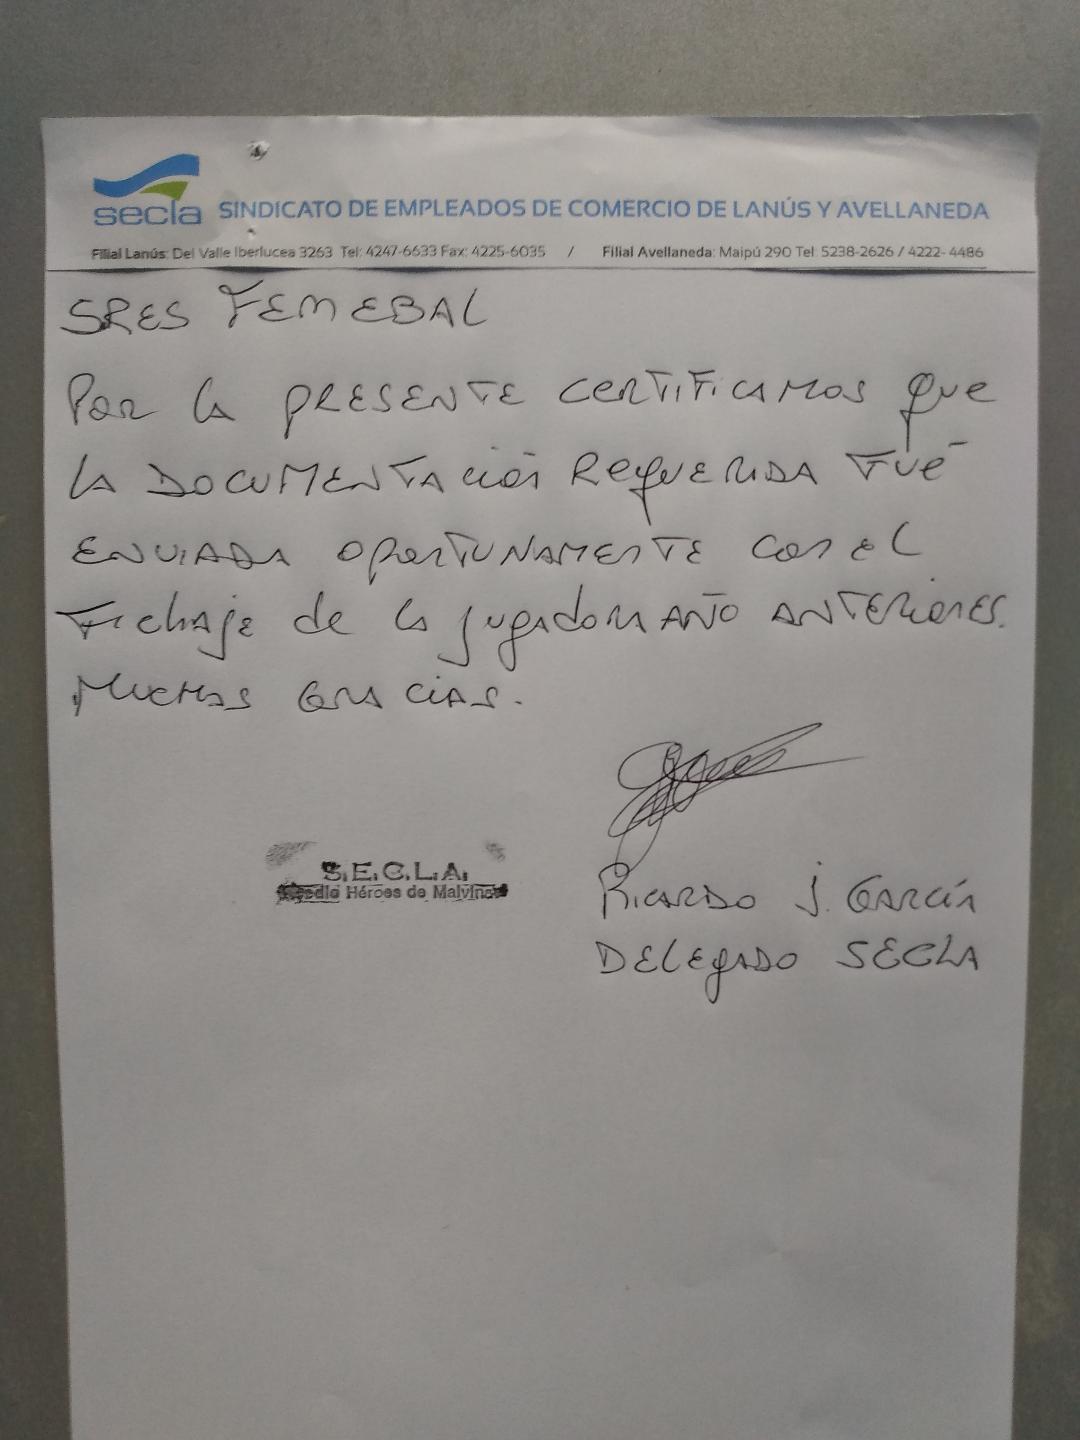 secla SINDICATO DE EMPLEADOS DE COMERCIO DE LANÚS Y AVELLANEDA
Filial Lanús: Del Valle Iberlucea 3263 Tel: 4247-6633 Fax: 4225-6035 / Filial Avellaneda: Maipú 290 Tel: 5238-2626 / 4222-4486
SRES FEMEBAL
Por la PRESENTE CERTIFICAMOS que
LA DOCUMENTACIÓN REQUERIDA FUÉ
ENVIADA OPORTUNAMENTE CON EL
Fichaje de la jugadora AÑO ANTERIORES.
MUCHAS GRACIAS.
S.E.C.L.A.
Predio Héroes de Malvinas
RICARDO J. GARCÍA
DELEGADO SECLA